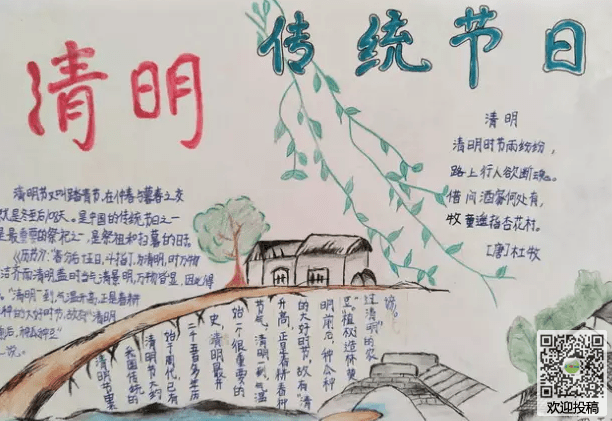 清明
传统节日
清明
清明时节雨纷纷，
路上行人欲断魂。
借问酒家何处有，
牧童遥指杏花村。
[唐]杜牧
清明节又叫踏青节，在仲春与暮春之交
是中国的传统节日之一
是最重要的祭祀之一，是祭祖和扫墓的日
为清明，时万物
洁齐而清明，盖时当气清景明，万物皆显，因此得
"清明"到，气温升高，正是春耕
种的大好时节，故有"清明
清明节是
我国传统的
清明节大约
始于周代，已有
二千五百多年历
史，清明最开
始一个很重要的
节气，清明到气温
升高，正是春耕春种
的大好时节，故有"清
明前后，种瓜种
植树造林莫
过清明"的农
谚。
欢迎投稿